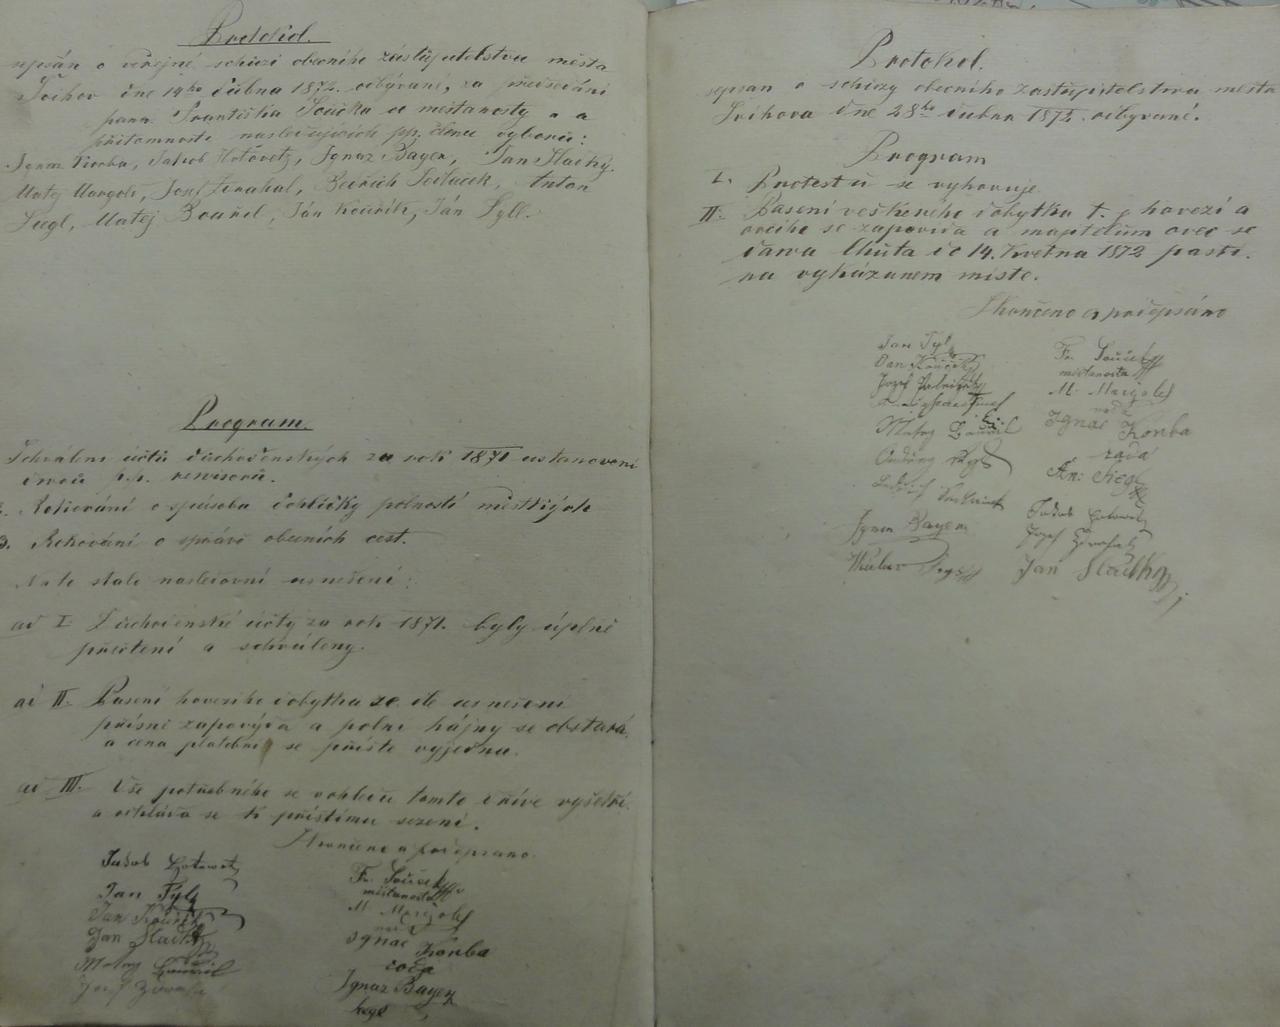 Protokol.
sepsán o veřejné schůzi obecního zastupitelstva města
Švihov dne 14ho dubna 1872. odbývané, za předsedání
pana Františka Součka co měštanosty a a
přítomnosti následujících pp. členů výboru:
Ignaz Korba, Jakob Hotovetz, Ignaz Bayer, Jan Slacký,
Matěj Margole, Josef Zvrahal, Bedřich Sedlacek, Anton
Siegl, Matěj Bouřil, Ján Kouřík, Ján Tyll.
Program.
Schválení účtů důchodenských za rok 1871 ustanovení
dvou p.p. revisorů.
2. Rokování o spůsobu dohlídky polností městkých
3. Rokování o správě obecních cest.
Na to stalo následovní usnešení:
ad I Důchodenské účty za rok 1871. byly úplně
přečtení a schváleny.
ad II. Pasení hovezího dobytka se dle usnešení
přísně zapovýda a polní hájny se obstará,
a cena platební se příště vyjedna.
ad III. Vše potřebného se vohledu tomto dříve vyšetří.
a odkláda se k příštímu sezení.
Skončeno a podepsano.
Jakob Hotowetz
Jan Tyl
Jan Kouřík
Jan Slacký
Matěj Bouřil
Josef Zvrahal
Fr. Souček
měštanosta
M. Margole
rada
Ignac Korba
rada
Ignaz Bayer
Siegl
Protokol.
sepsan o schůzy obecního zastupitelstva města
Švihova dne 28ho dubna 1872. odbyvané.
Program
I. Protestů se vyhovuje
II. Pasení veškeného dobytka t. j. hovezí a
ovčího se zapovída a majitelům ovec se
dáwa Lhůta do 14. Května 1872 pasti
na vykázanem místě.
Skončeno a podepsáno
Jan Tyl
Jan Kouřík
Josef
Matěj Bouřil
Ondřey
Bedřich Sedlacek
Ignaz Bayer
Fr. Souček
měštanosta
M. Margole
rada
Ignac Korba
rada
An: Siegl
Jakob Hotowetz
Josef Zvrahal
Jan Slacký